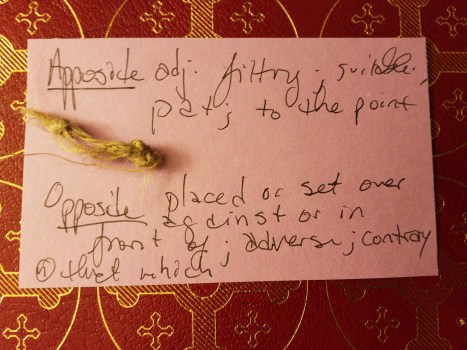 Apposide adj. fittng; suitable;
pat; to the point
Opposite placed or set over
against or in
front of; adverse; contray
(n) that which